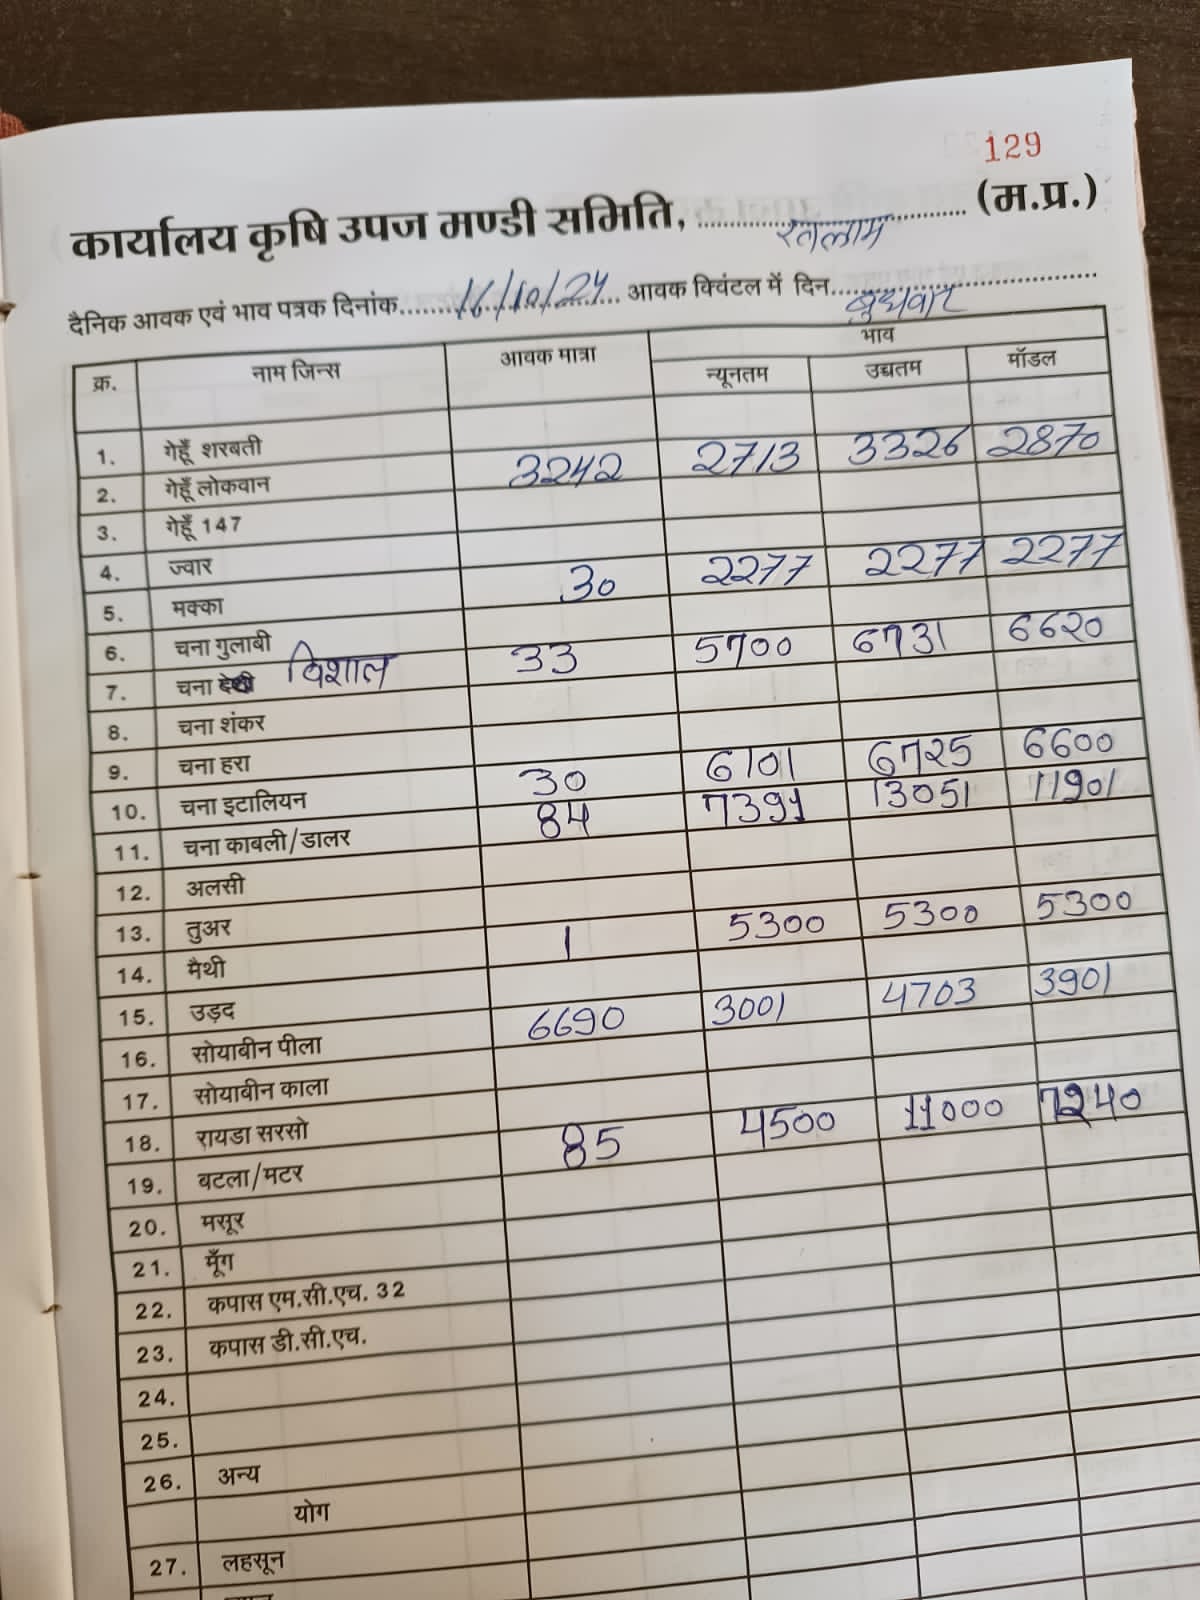 129
कार्यालय कृषि उपज मण्डी समिति, रतलाम (म.प्र.)
दैनिक आवक एवं भाव पत्रक दिनांक 16/10/24 आवक क्विंटल में दिन बुधवार
क्र. नाम जिन्स आवक मात्रा भाव
न्यूनतम उद्यतम मॉडल
1. गेहूँ शरबती
2. गेहूँ लोकवान 3242 2713 3326 2870
3. गेहूँ 147
4. ज्वार
5. मक्का 30 2277 2277 2277
6. चना गुलाबी
7. चना विशाल 33 5700 6731 6620
8. चना शंकर
9. चना हरा
10. चना इटालियन 30 6101 6725 6600
11. चना काबली/डालर 84 7391 13051 11901
12. अलसी
13. तुअर
14. मैथी 1 5300 5300 5300
15. उड़द
16. सोयाबीन पीला 6690 3001 4703 3901
17. सोयाबीन काला
18. रायडा सरसो
19. बटला/मटर 85 4500 11000 7240
20. मसूर
21. मूँग
22. कपास एम.सी.एच. 32
23. कपास डी.सी.एच.
24.
25.
26. अन्य
योग
27. लहसून